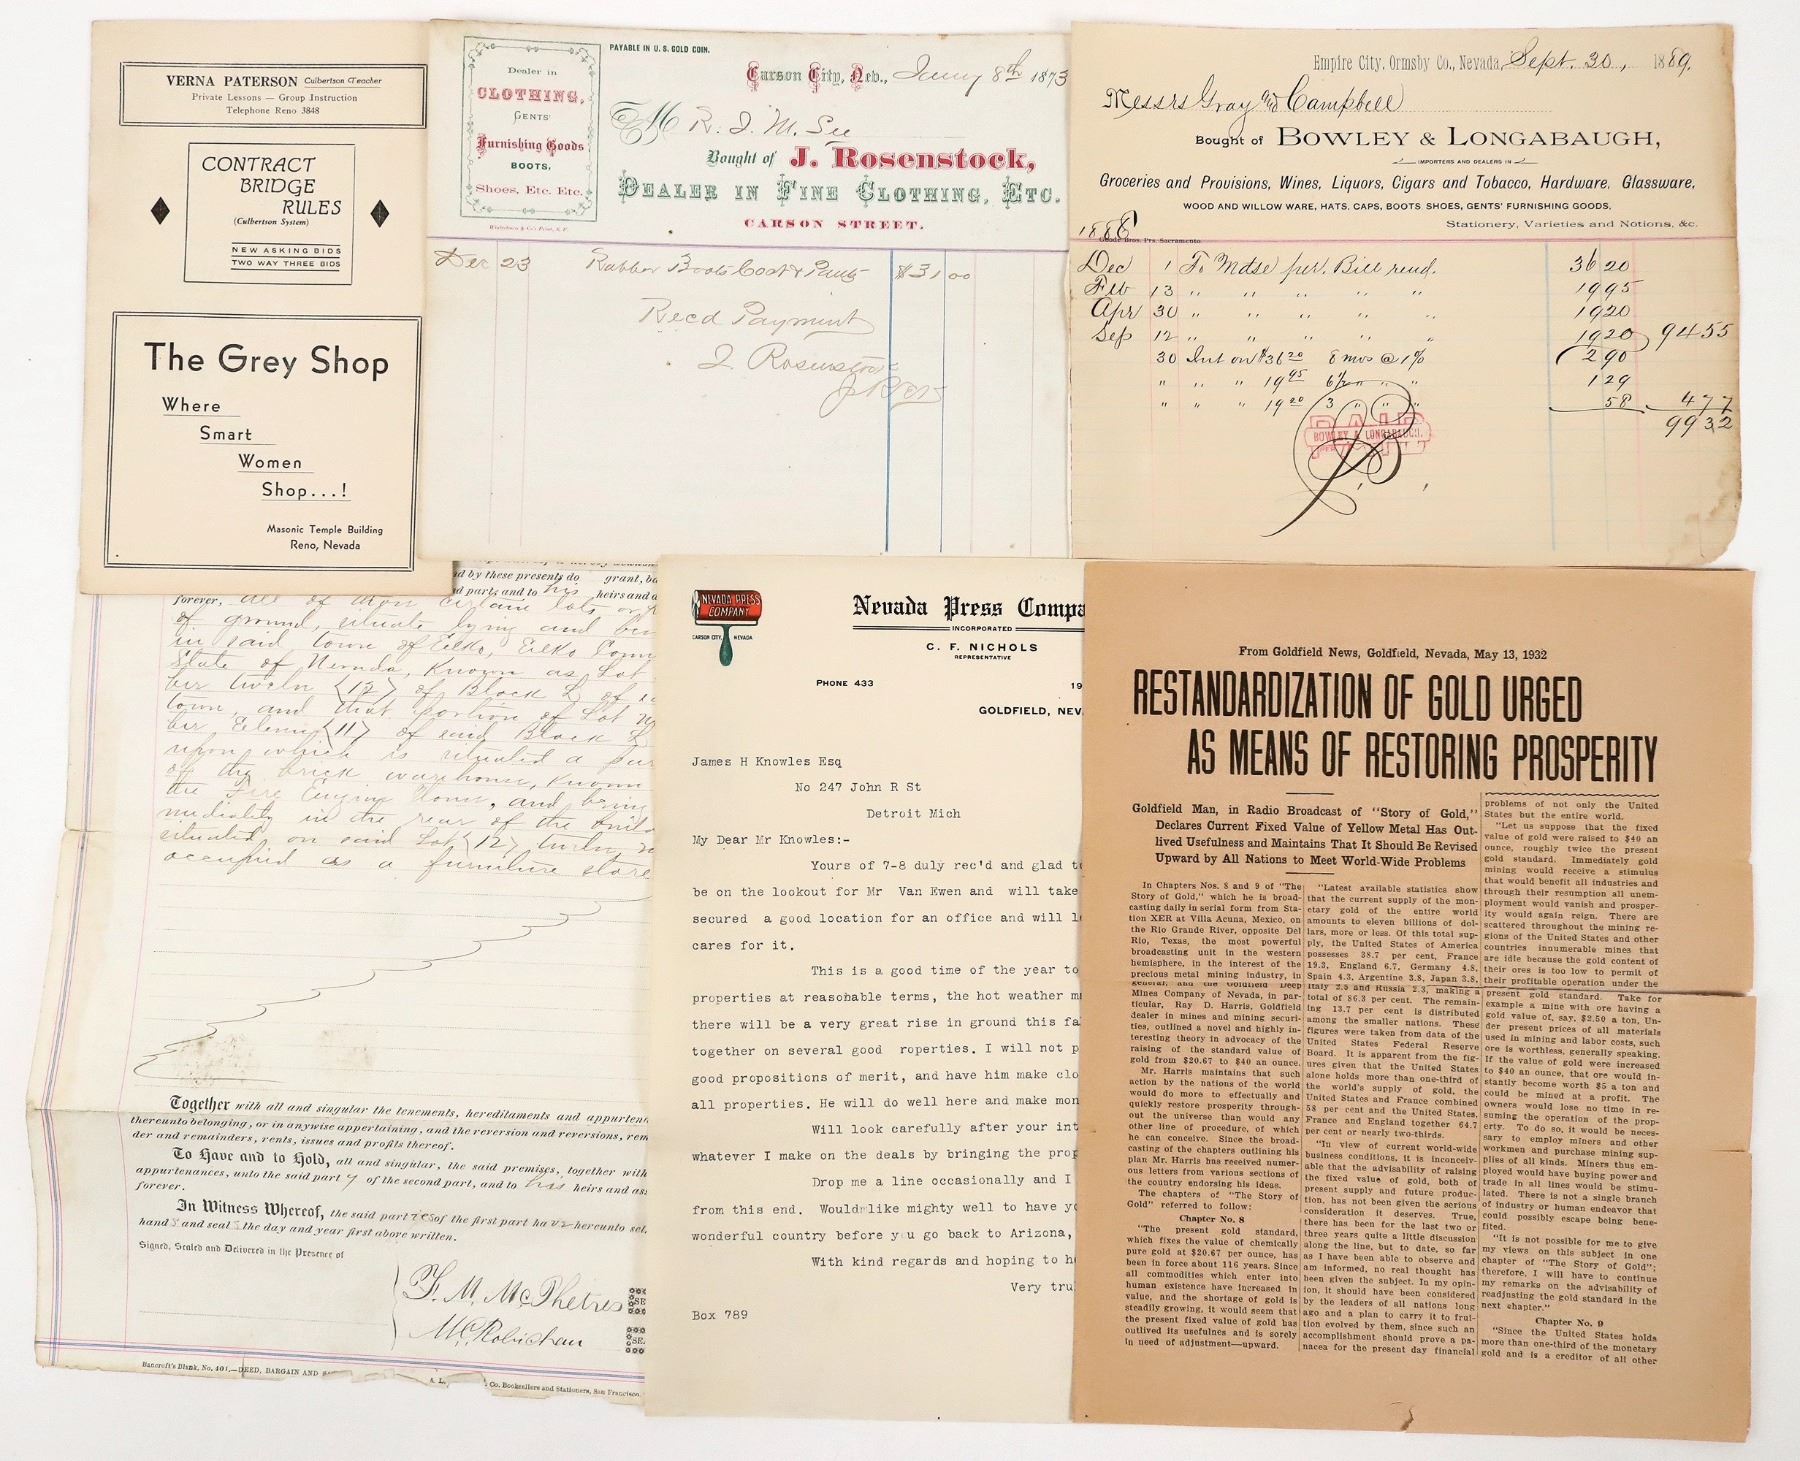 VERNA PATERSON Culbertson Teacher
Private Lessons — Group Instruction
Telephone Reno 3848
CONTRACT
BRIDGE
RULES
(Culbertson System)
NEW ASKING BIDS
TWO WAY THREE BIDS
The Grey Shop
Where
Smart
Women
Shop...!
Masonic Temple Building
Reno, Nevada
PAYABLE IN U. S. GOLD COIN.
Dealer in
CLOTHING,
GENTS'
Furnishing Goods
BOOTS,
Shoes, Etc. Etc.
Carson City, Nev., 8th 1873
M R. J. M. See
Bought of J. Rosenstock,
DEALER IN FINE CLOTHING, ETC.
CARSON STREET.
Dec 23 Rubber Boots Coat & Pants $31 00
Recd Payment
J. Rosenstock
Empire City, Ormsby Co., Nevada, Sept. 30, 1889.
Messrs Gray and Campbell
Bought of BOWLEY & LONGABAUGH,
IMPORTERS AND DEALERS IN
Groceries and Provisions, Wines, Liquors, Cigars and Tobacco, Hardware, Glassware,
WOOD AND WILLOW WARE, HATS, CAPS, BOOTS, SHOES, GENTS' FURNISHING GOODS,
Stationery, Varieties and Notions, &c.
1888
Dec 1 To Mdse per. Bill rend. 36 20
Feb 13 " " " " " 19 95
Apr 30 " " " " " 19 20
Sep 12 " " " " " 19 20 94 55
30 Int on $36 20 8 mos @ 1% 2 90
" " " 19 95 6½ " " " 1 29
" " " 19 20 3 " " " 58 4 77
99 32
PAID
BOWLEY & LONGABAUGH.
PER
d by these presents do grant, ba
d part and to his heirs and a
forever, all of those certain lots or
of ground, situate lying and
in said town of Elko, Elko
State of Nevada, known as Lot
ber twelve (12) of Block L of
town, and that portion of Lot
ber Eleven (11) of said Block L
upon which is situated a
of the brick warehouse, known
the Fire Engine House, and being
mediately in the rear of the
situated on said Lot (12) twelve,
occupied as a furniture store
Together with all and singular the tenements, hereditaments and appurten
thereunto belonging, or in anywise appertaining, and the reversion and reversions, rem
der and remainders, rents, issues and profits thereof.
To Have and to Hold, all and singular, the said premises, together with
appurtenances, unto the said part y of the second part, and to his heirs and as
forever.
In Witness Whereof, the said part ies of the first part ha ve hereunto set
hand s and seal s the day and year first above written.
Signed, Sealed and Delivered in the Presence of
F. M. McPhetres
Bancroft's Blank, No. 401.—DEED, BARGAIN AND
Co. Booksellers and Stationers, San Francisco.
NEVADA PRESS
COMPANY
CARSON CITY, NEVADA
Nevada Press Compa
INCORPORATED
C. F. NICHOLS
REPRESENTATIVE
PHONE 433
19
GOLDFIELD, NEV.
James H Knowles Esq
No 247 John R St
Detroit Mich
My Dear Mr Knowles:-
Yours of 7-8 duly rec'd and glad t
be on the lookout for Mr Van Ewen and will take
secured a good location for an office and will l
cares for it.
This is a good time of the year to
properties at reasonable terms, the hot weather m
there will be a very great rise in ground this fa
together on several good roperties. I will not p
good propositions of merit, and have him make clo
all properties. He will do well here and make mon
Will look carefully after your int
whatever I make on the deals by bringing the prop
Drop me a line occasionally and I
from this end. Would like mighty well to have y
wonderful country before y u go back to Arizona,
With kind regards and hoping to h
Very tru
Box 789
From Goldfield News, Goldfield, Nevada, May 13, 1932
RESTANDARDIZATION OF GOLD URGED
AS MEANS OF RESTORING PROSPERITY
Goldfield Man, in Radio Broadcast of "Story of Gold,"
Declares Current Fixed Value of Yellow Metal Has Out-
lived Usefulness and Maintains That It Should Be Revised
Upward by All Nations to Meet World-Wide Problems
In Chapters Nos. 8 and 9 of "The
Story of Gold," which he is broad-
casting daily in serial form from Sta-
tion XER at Villa Acuna, Mexico, on
the Rio Grande River, opposite Del
Rio, Texas, the most powerful
broadcasting unit in the western
hemisphere, in the interest of the
precious metal mining industry, in
general, and the Goldfield Deep
Mines Company of Nevada, in par-
ticular, Ray D. Harris, Goldfield
dealer in mines and mining securi-
ties, outlined a novel and highly in-
teresting theory in advocacy of the
raising of the standard value of
gold from $20.67 to $40 an ounce.
Mr. Harris maintains that such
action by the nations of the world
would do more to effectually and
quickly restore prosperity through-
out the universe than would any
other line of procedure, of which
he can conceive. Since the broad-
casting of the chapters outlining his
plan Mr. Harris has received numer-
ous letters from various sections of
the country endorsing his ideas.
The chapters of "The Story of
Gold" referred to follow:
Chapter No. 8
"The present gold standard,
which fixes the value of chemically
pure gold at $20.67 per ounce, has
been in force about 116 years. Since
all commodities which enter into
human existence have increased in
value, and the shortage of gold is
steadily growing, it would seem that
the present fixed value of gold has
outlived its usefulnes and is sorely
in need of adjustment—upward.
"Latest available statistics show
that the current supply of the mon-
etary gold of the entire world
amounts to eleven billions of dol-
lars, more or less. Of this total sup-
ply, the United States of America
possesses 38.7 per cent, France
19.3, England 6.7, Germany 4.8,
Spain 4.3, Argentine 3.8, Japan 3.8,
Italy 2.5 and Russia 2.3, making a
total of 86.3 per cent. The remain-
ing 13.7 per cent is distributed
among the smaller nations. These
figures were taken from data of the
United States Federal Reserve
Board. It is apparent from the fig-
ures given that the United States
alone holds more than one-third of
the world's supply of gold, the
United States and France combined
58 per cent and the United States,
France and England together 64.7
per cent or nearly two-thirds.
"In view of current world-wide
business conditions, it is inconceiv-
able that the advisability of raising
the fixed value of gold, both of
present supply and future produc-
tion, has not been given the serious
consideration it deserves. True,
there has been for the last two or
three years quite a little discussion
along the line, but to date, so far
as I have been able to observe and
am informed, no real thought has
been given the subject. In my opin-
ion, it should have been considered
by the leaders of all nations long
ago and a plan to carry it to frui-
tion evolved by them, since such an
accomplishment should prove a pa-
nacea for the present day financial
problems of not only the United
States but the entire world.
"Let us suppose that the fixed
value of gold were raised to $40 an
ounce, roughly twice the present
gold standard. Immediately gold
mining would receive a stimulus
that would benefit all industries and
through their resumption all unem-
ployment would vanish and prosper-
ity would again reign. There are
scattered throughout the mining re-
gions of the United States and other
countries innumerable mines that
are idle because the gold content of
their ores is too low to permit of
their profitable operation under the
present gold standard. Take for
example a mine with ore having a
gold value of, say, $2.50 a ton. Un-
der present prices of all materials
used in mining and labor costs, such
ore is worthless, generally speaking.
If the value of gold were increased
to $40 an ounce, that ore would in-
stantly become worth $5 a ton and
could be mined at a profit. The
owners would lose no time in re-
suming the operation of the prop-
erty. To do so, it would be neces-
sary to employ miners and other
workmen and purchase mining sup-
plies of all kinds. Miners thus em-
ployed would have buying power and
trade in all lines would be stimu-
lated. There is not a single branch
of industry or human endeavor that
could possibly escape being bene-
fited.
"It is not possible for me to give
my views on this subject in one
chapter of "The Story of Gold";
therefore, I will have to continue
my remarks on the advisability of
readjusting the gold standard in the
next chapter."
Chapter No. 9
"Since the United States holds
more than one-third of the monetary
gold and is a creditor of all other